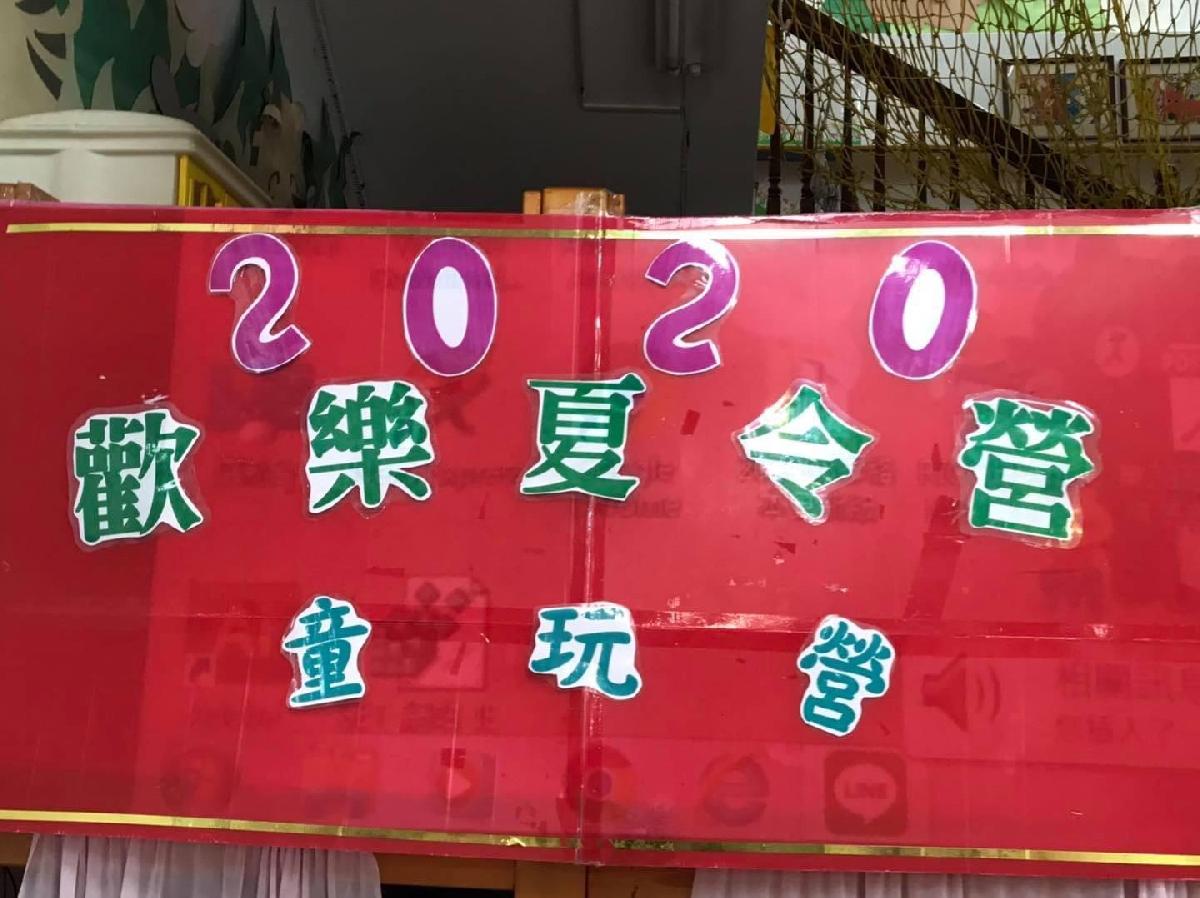 2020
歡樂夏令營
童玩營
LINE